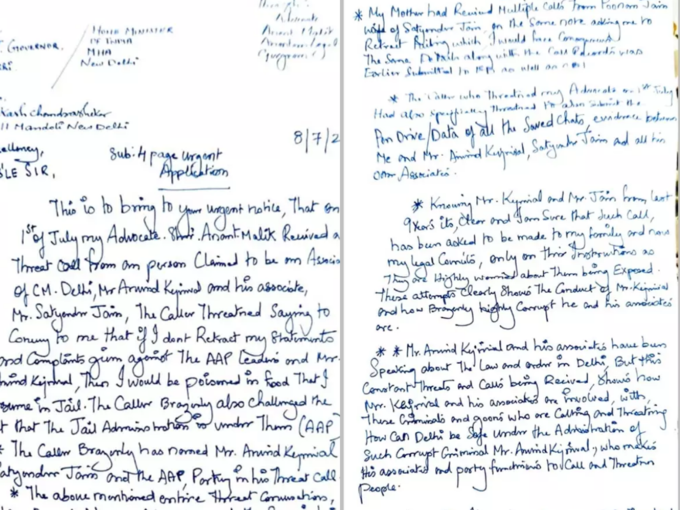 GOVERNOR,
HOME MINISTER
MHA
New Delhi
Advocate
Anant Malik
Mandoli New Delhi
8/7/2
Sub: 4 page urgent
Application
SIR,
This is to bring to your urgent notice, That on
1st of July my Advocate. Shri. Anant Malik Received a
Threat call from an person Claimed to be an Associ
of CM. Delhi, Mr Arvind Kejriwal and his associate,
Mr. Satyender Jain, The Caller Threatned Saying to
Convey to me that if I dont Retract my Statements
and Complaints given against The AAP Leaders and Mr.
Kejriwal, Then I would be poisoned in food That I
in Jail. The Caller Brazenly also challenged the
that The Jail Administration is under Them (AAP)
* The Caller Brazenly has named Mr. Arvind Kejriwal
Satyender Jain and the AAP, Party in his Threat Call
* The above mentioned entire Threat Conversations,
* My Mother had Received Multiple Calls from Poonam Jain
wife of Satyender Jain, on the Same note asking me to
Retract Failing which I would face Consequences
The Same Details along with the Call Records was
Earlier Submitted to as well as
* The Caller who Threatned my Advocate on 1st July
Had also Specifically Threatned to submit the
Pen Drive/Data of all the Saved Chats, evidence between
Me and Mr. Arvind Kejriwal, Satyender Jain and all his
Associates.
* Knowing Mr. Kejriwal and Mr. Jain from last
9 Years its, Clear and I am Sure that Such Call,
has been asked to be made to my family and now
my Legal Counsils, only on Their Instructions as
They are Highly worried about Them being Exposed.
These attempts Clearly Shows The Conduct of Mr. Kejriwal
and how Brazenly highly Corrupt he and his associates
are.
* * Mr. Arvind Kejriwal and his associates have been
Speaking about The Law and order in Delhi, But this
Constant Threats and Calls being Received, Shows how
Mr. Kejriwal and his associates are involved, with
These Criminals and goons who are Calling and Threatning
How Can Delhi be Safe under the Administration of
Such Corrupt Criminal Mr. Arvind Kejriwal, who makes
His associates and party functionaries to Call and Threaten
People.